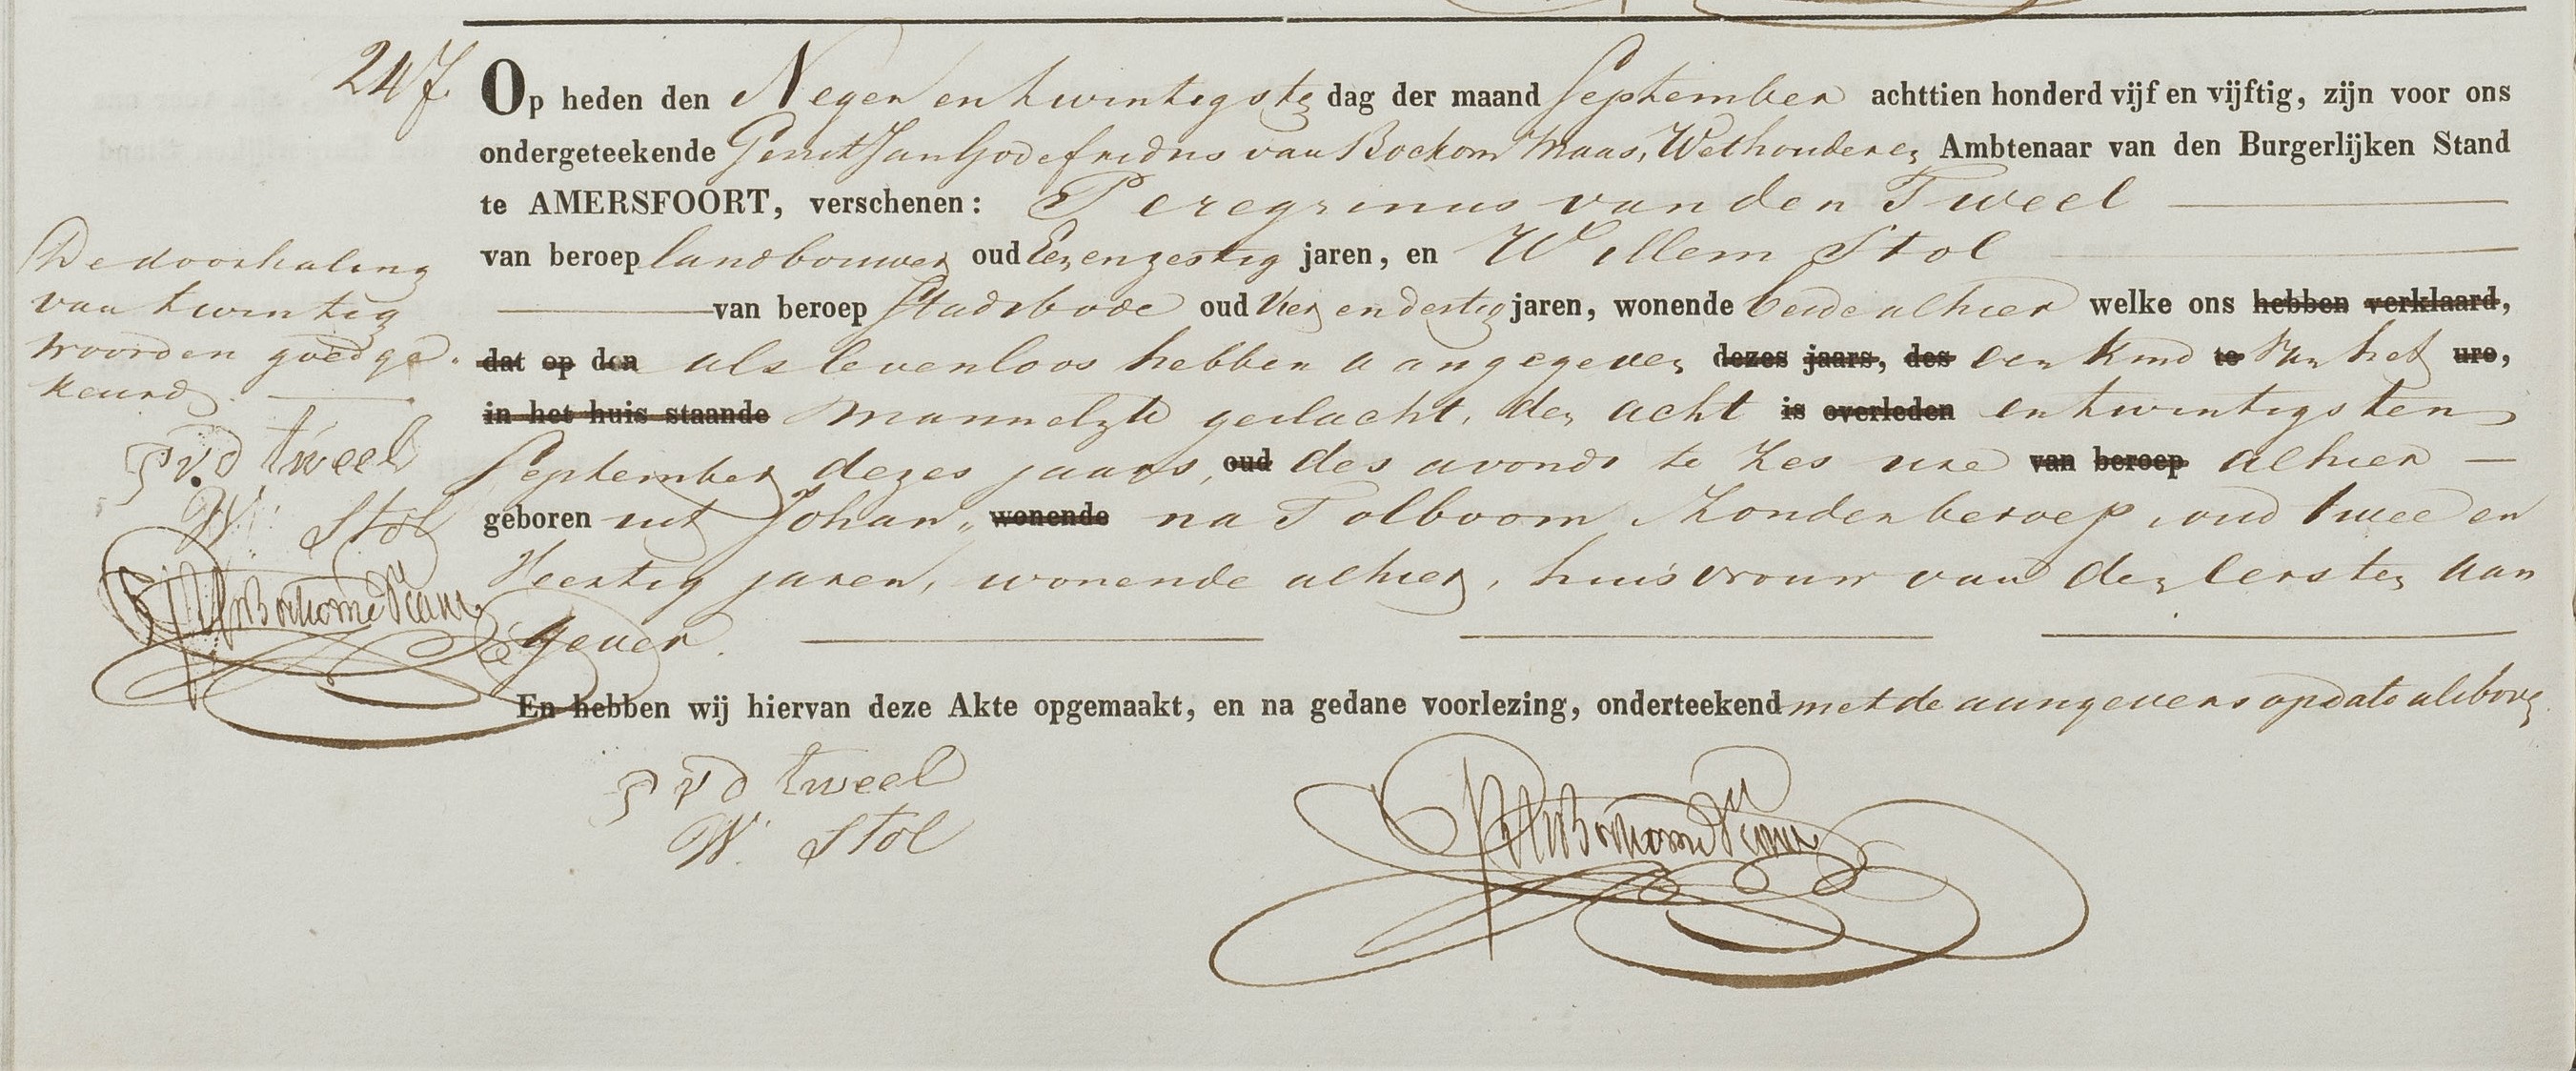 247.
Op heden den Negen en twintigste dag der maand September achttien honderd vijf en vijftig, zijn voor ons
ondergeteekende Gerrit Jan Godefridus van Bockom Maas, Wethouder, Ambtenaar van den Burgerlijken Stand
te AMERSFOORT, verschenen: Peregrinus van den Tweel
van beroep landbouwer oud Een en zestig jaren, en Willem Stol
van beroep Stadsbode oud Vier en dertig jaren, wonende beide alhier welke ons hebben verklaard,
dat op den als levenloos hebben aangegeven dezes jaars, des een kind te van het ure,
in het huis staande mannelijk geslacht, den acht is overleden en twintigsten
September dezes jaars, oud des avonds te zes ure van beroep alhier
geboren uit Johan„ wonende na Tolboom Zonder beroep, oud twee en
Veertig jaren, wonende alhier, huisvrouw van den eersten aan
gever.
En hebben wij hiervan deze Akte opgemaakt, en na gedane voorlezing, onderteekend met de aangevers op dato alsboven
P v d tweel
W. Stol
De doorhaling
van twintig
woorden goedge-
keurd
P v. d tweel
W. Stol